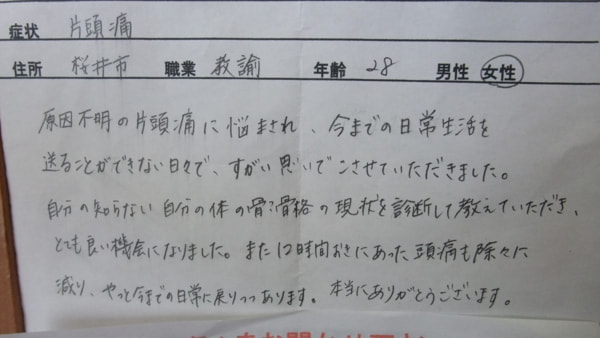 症状 片頭痛
住所 桜井市 職業 教諭 年齢 28 男性 女性
原因不明の片頭痛に悩まされ、今までの日常生活を
送ることができない日々で、すがい思いでこさせていただきました。
自分の知らない自分の体の骨、骨格の現状を診断して教えていただき、
とても良い機会になりました。また12時間おきにあった頭痛も除々に
減り、やっと今までの日常に戻りつつあります。本当にありがとうございます。